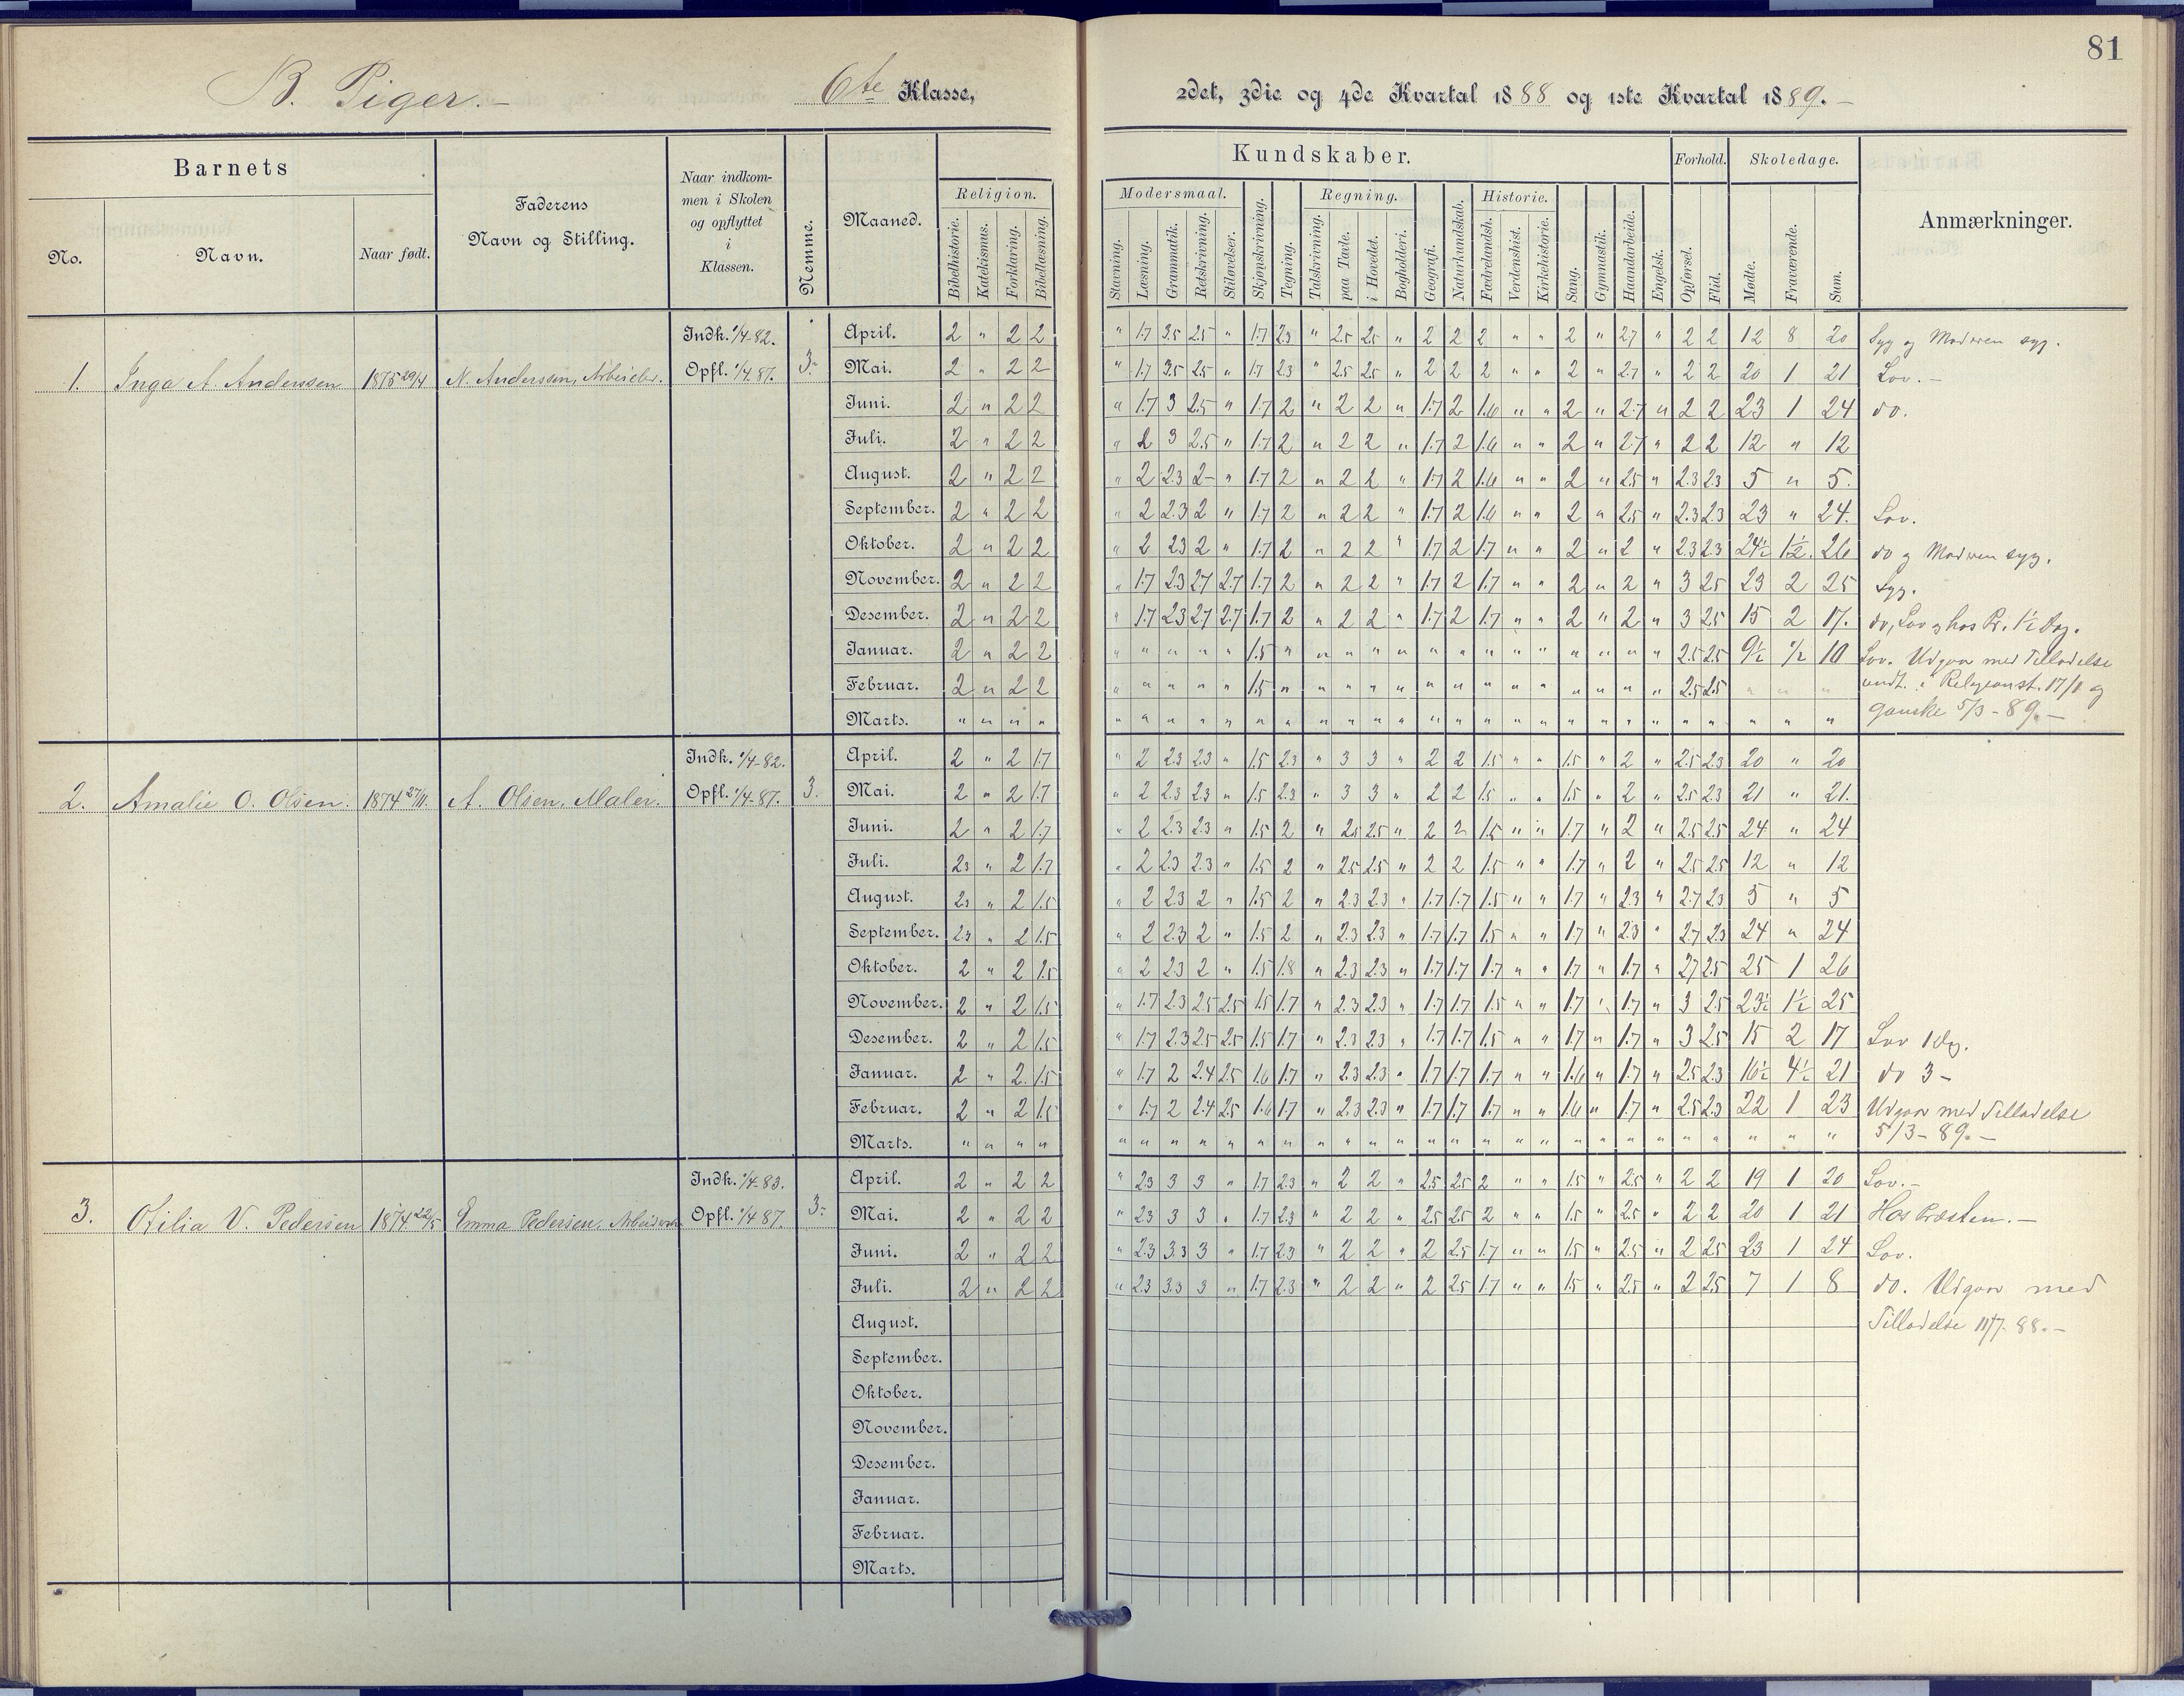 81
B. Piger.- 6te Klasse, 2det, 3die og 4de Kvartal 1888 og 1ste Kvartal 1889.-
Barnets
No.
Navn.
Naar født.
Faderens
Navn og Stilling.
Naar indkom-
men i Skolen
og opflyttet
i
Klassen.
Nemme.
Maaned.
Religion.
Bibelhistorie.
Katekismus.
Forklaring.
Bibellæsning.
Kundskaber.
Modersmaal.
Stavning.
Læsning.
Grammatik.
Retskrivning.
Stiløvelser.
Skjønskrivning.
Tegning.
Regning.
Talskrivning.
paa Tavle.
i Hovedet.
Bogholderi.
Geografi.
Naturkundskab.
Historie.
Fædrelandsh.
Verdenshist.
Kirkehistorie.
Sang.
Gymnastik.
Haandarbeide.
Engelsk.
Forhold.
Opførsel.
Flid.
Skoledage.
Mødte.
Fraværende.
Sum.
Anmærkninger.
1. Inga A. Andersen 1875 29/4 N. Andersen, Arbeider. Indk. 1/4-82. Opfl. 1/4-87. 3.
April. 2 " 2 2 " 1.7 3.5 2.5 " 1.7 2.3 " 2.5 2.5 " 2 2 2 " " 2 " 2.7 " 2 2 12 8 20 Syg og Moderen syg.
Mai. 2 " 2 2 " 1.7 3.5 2.5 " 1.7 2.3 " 2.5 2.5 " 2 2 2 " " 2 " 2.7 " 2 2 20 1 21 Lov.-
Juni. 2 " 2 2 " 1.7 3 2.5 " 1.7 2 " 2 2 " 1.7 2 1.6 " " 2 " 2.7 " 2 2 23 1 24 do.
Juli. 2 " 2 2 " 2 3 2.5 " 1.7 2 " 2 2 " 1.7 2 1.6 " " 2 " 2.7 " 2 2 12 " 12
August. 2 " 2 2 " 2 2.3 2 " 1.7 2 " 2 2 " 1.7 2 1.6 " " 2 " 2.5 " 2.3 2.3 5 " 5.
September. 2 " 2 2 " 2 2.3 2 " 1.7 2 " 2 2 " 1.7 2 1.6 " " 2 " 2.5 " 2.3 2.3 23 " 24. Lov.
Oktober. 2 " 2 2 " 2 2.3 2 " 1.7 2 " 2 2 " 1.7 2 1.7 " " 2 " 2 " 2.3 2.3 24½ 1½ 26 do og Moderen syg.
November. 2 " 2 2 " 1.7 2.3 2.7 2.7 1.7 2 " 2 2 " 1.7 2 1.7 " " 2 " 2 " 3 2.5 23 2 25 Syg.
Desember. 2 " 2 2 " 1.7 2.3 2.7 2.7 1.7 2 " 2 2 " 1.7 2 1.7 " " 2 " 2 " 3 2.5 15 2 17. do, Lov og hos Pr. 1½ Dag.
Januar. 2 " 2 2 " " " " " 1.5 " " " " " " " " " " " " " " 2.5 2.5 9½ ½ 10 Lov. Udgaar med Tilladelse
Februar. 2 " 2 2 " " " " " 1.5 " " " " " " " " " " " " " " 2.5 2.5 " " " undt. i Religionst. 17/1 og
Marts. " " " " " " " " " " " " " " " " " " " " " " " " " " " " " ganske 5/3-89.-
2. Amalie O. Olsen. 1874 27/11. A. Olsen, Maler. Indk. 1/4-82. Opfl. 1/4-87. 3.
April. 2 " 2 1.7 " 2 2.3 2.3 " 1.5 2.3 " 3 3 " 2 2 1.5 " " 1.5 " 2 " 2.5 2.3 20 " 20
Mai. 2 " 2 1.7 " 2 2.3 2.3 " 1.5 2.3 " 3 3 " 2 2 1.5 " " 1.5 " 2 " 2.5 2.3 21 " 21.
Juni. 2 " 2 1.7 " 2 2.3 2.3 " 1.5 2 " 2.5 2.5 " 2 2 1.5 " " 1.7 " 2 " 2.5 2.5 24 " 24
Juli. 2.3 " 2 1.7 " 2 2.3 2.3 " 1.5 2 " 2.5 2.5 " 2 2 1.5 " " 1.7 " 2 " 2.5 2.5 12 " 12
August. 2.3 " 2 1.5 " 2 2.3 2 " 1.5 2 " 2.3 2.3 " 1.7 1.7 1.5 " " 1.7 " 2.3 " 2.7 2.3 5 " 5
September. 2.3 " 2 1.5 " 2 2.3 2 " 1.5 2 " 2.3 2.3 " 1.7 1.7 1.5 " " 1.7 " 2.3 " 2.7 2.3 24 " 24
Oktober. 2 " 2 1.5 " 2 2.3 2 " 1.5 1.8 " 2.3 2.3 " 1.7 1.7 1.7 " " 1.7 " 1.7 " 2.7 2.5 25 1 26
November. 2 " 2 1.5 " 1.7 2.3 2.5 2.5 1.5 1.7 " 2.3 2.3 " 1.7 1.7 1.5 " " 1.7 " 1.7 " 3 2.5 23½ 1½ 25
Desember. 2 " 2 1.5 " 1.7 2.3 2.5 2.5 1.5 1.7 " 2.3 2.3 " 1.7 1.7 1.5 " " 1.7 " 1.7 " 3 2.5 15 2 17 Lov 1 Dg.
Januar. 2 " 2. 1.5 " 1.7 2 2.4 2.5 1.6 1.7 " 2.3 2.3 " 1.7 1.7 1.7 " " 1.6 " 1.7 " 2.5 2.3 16½ 4½ 21 do 3-
Februar. 2 " 2 1.5 " 1.7 2 2.4 2.5 1.6 1.7 " 2.3 2.3 " 1.7 1.7 1.7 " " 1.6 " 1.7 " 2.5 2.3 22 1 23 Udgaar med Tilladelse
Marts. " " " " " " " " " " " " " " " " " " " " " " " " " " " " " 5/3-89.-
3. Otilia V. Pedersen 1874 22/5 Emma Pedersen, Indk. 1/4-83. Opfl. 1/4 87. 3.
April. 2 " 2 2 " 2.3 3 3 " 1.7 2.3 " 2 2 " 2.5 2.5 2 " " 1.5 " 2.5 " 2 2 19 1 20 Lov.-
Mai. 2 " 2 2 " 2.3 3 3 " 1.7 2.3 " 2 2 " 2.5 2.5 2 " " 1.5 " 2.5 " 2 2 20 1 21 Hos Præsten.-
Juni. 2 " 2 2 " 2.3 3.3 3 " 1.7 2.3 " 2 2 " 2 2.5 1.7 " " 1.5 " 2.5 " 2 2.5 23 1 24 Lov.
Juli. 2 " 2 2 " 2.3 3.3 3 " 1.7 2.3 " 2 2 " 2 2.5 1.7 " " 1.5 " 2.5 " 2 2.5 7 1 8 do. Udgaar med
August. Tilladelse 11/7-88.-
September.
Oktober.
November.
Desember.
Januar.
Februar.
Marts.